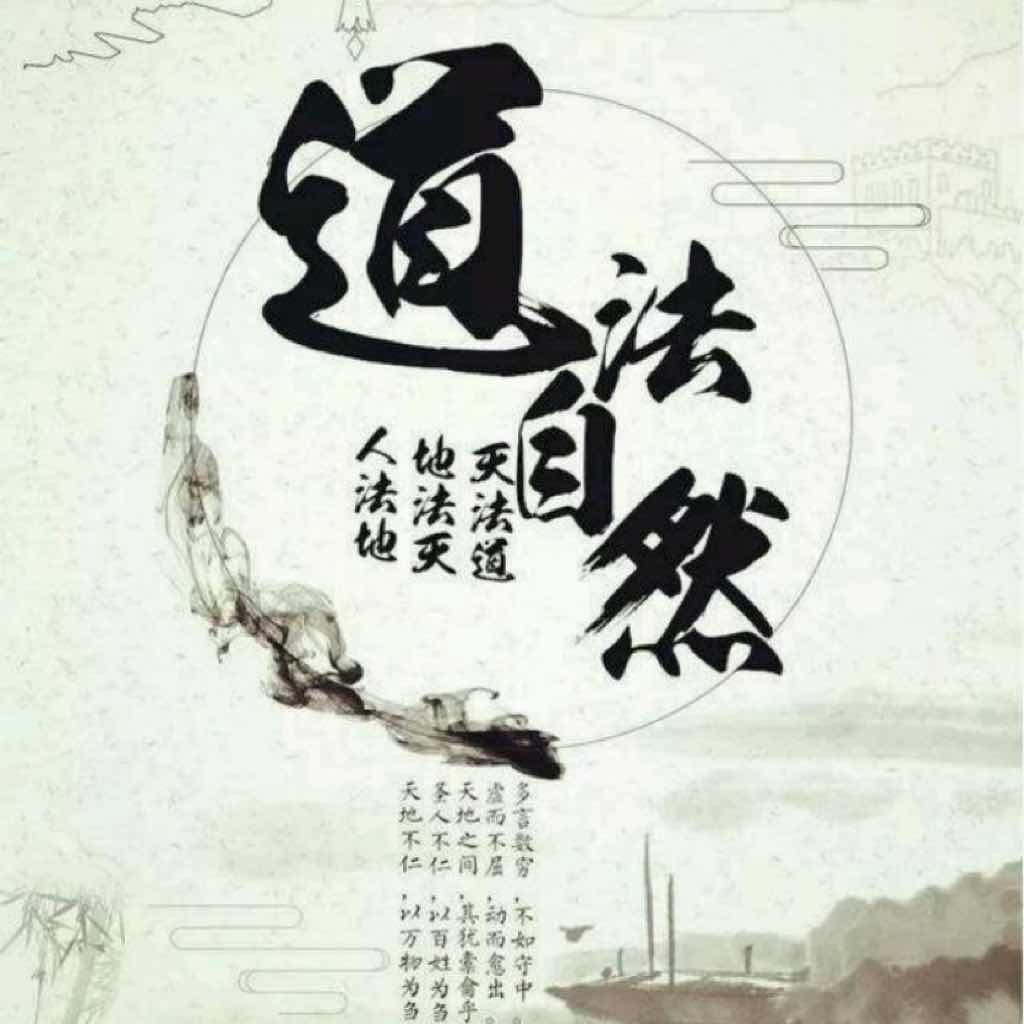 道法自然
人法地
地法天
天法道
天地不仁，以万物为刍
圣人不仁，以百姓为刍
天地之间，其犹橐龠乎
虚而不屈，动而愈出。
多言数穷，不如守中。